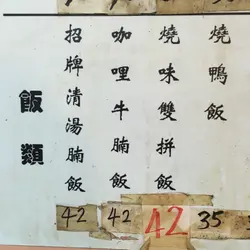 飯類
招牌清湯腩飯
42
咖哩牛腩飯
42
燒味雙拼飯
42
燒鴨飯
35